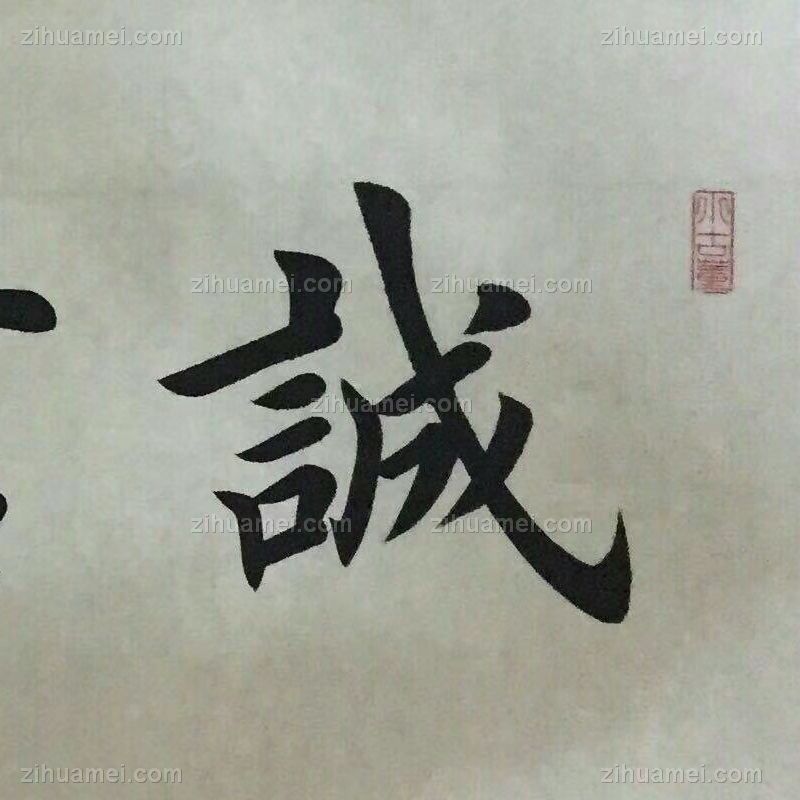 zihuamei.com zihuamei.com
誠
zihuamei.com zihuamei.com
zihuamei.com
zihuamei.com zihuamei.com
zihuamei.com zihuamei.com